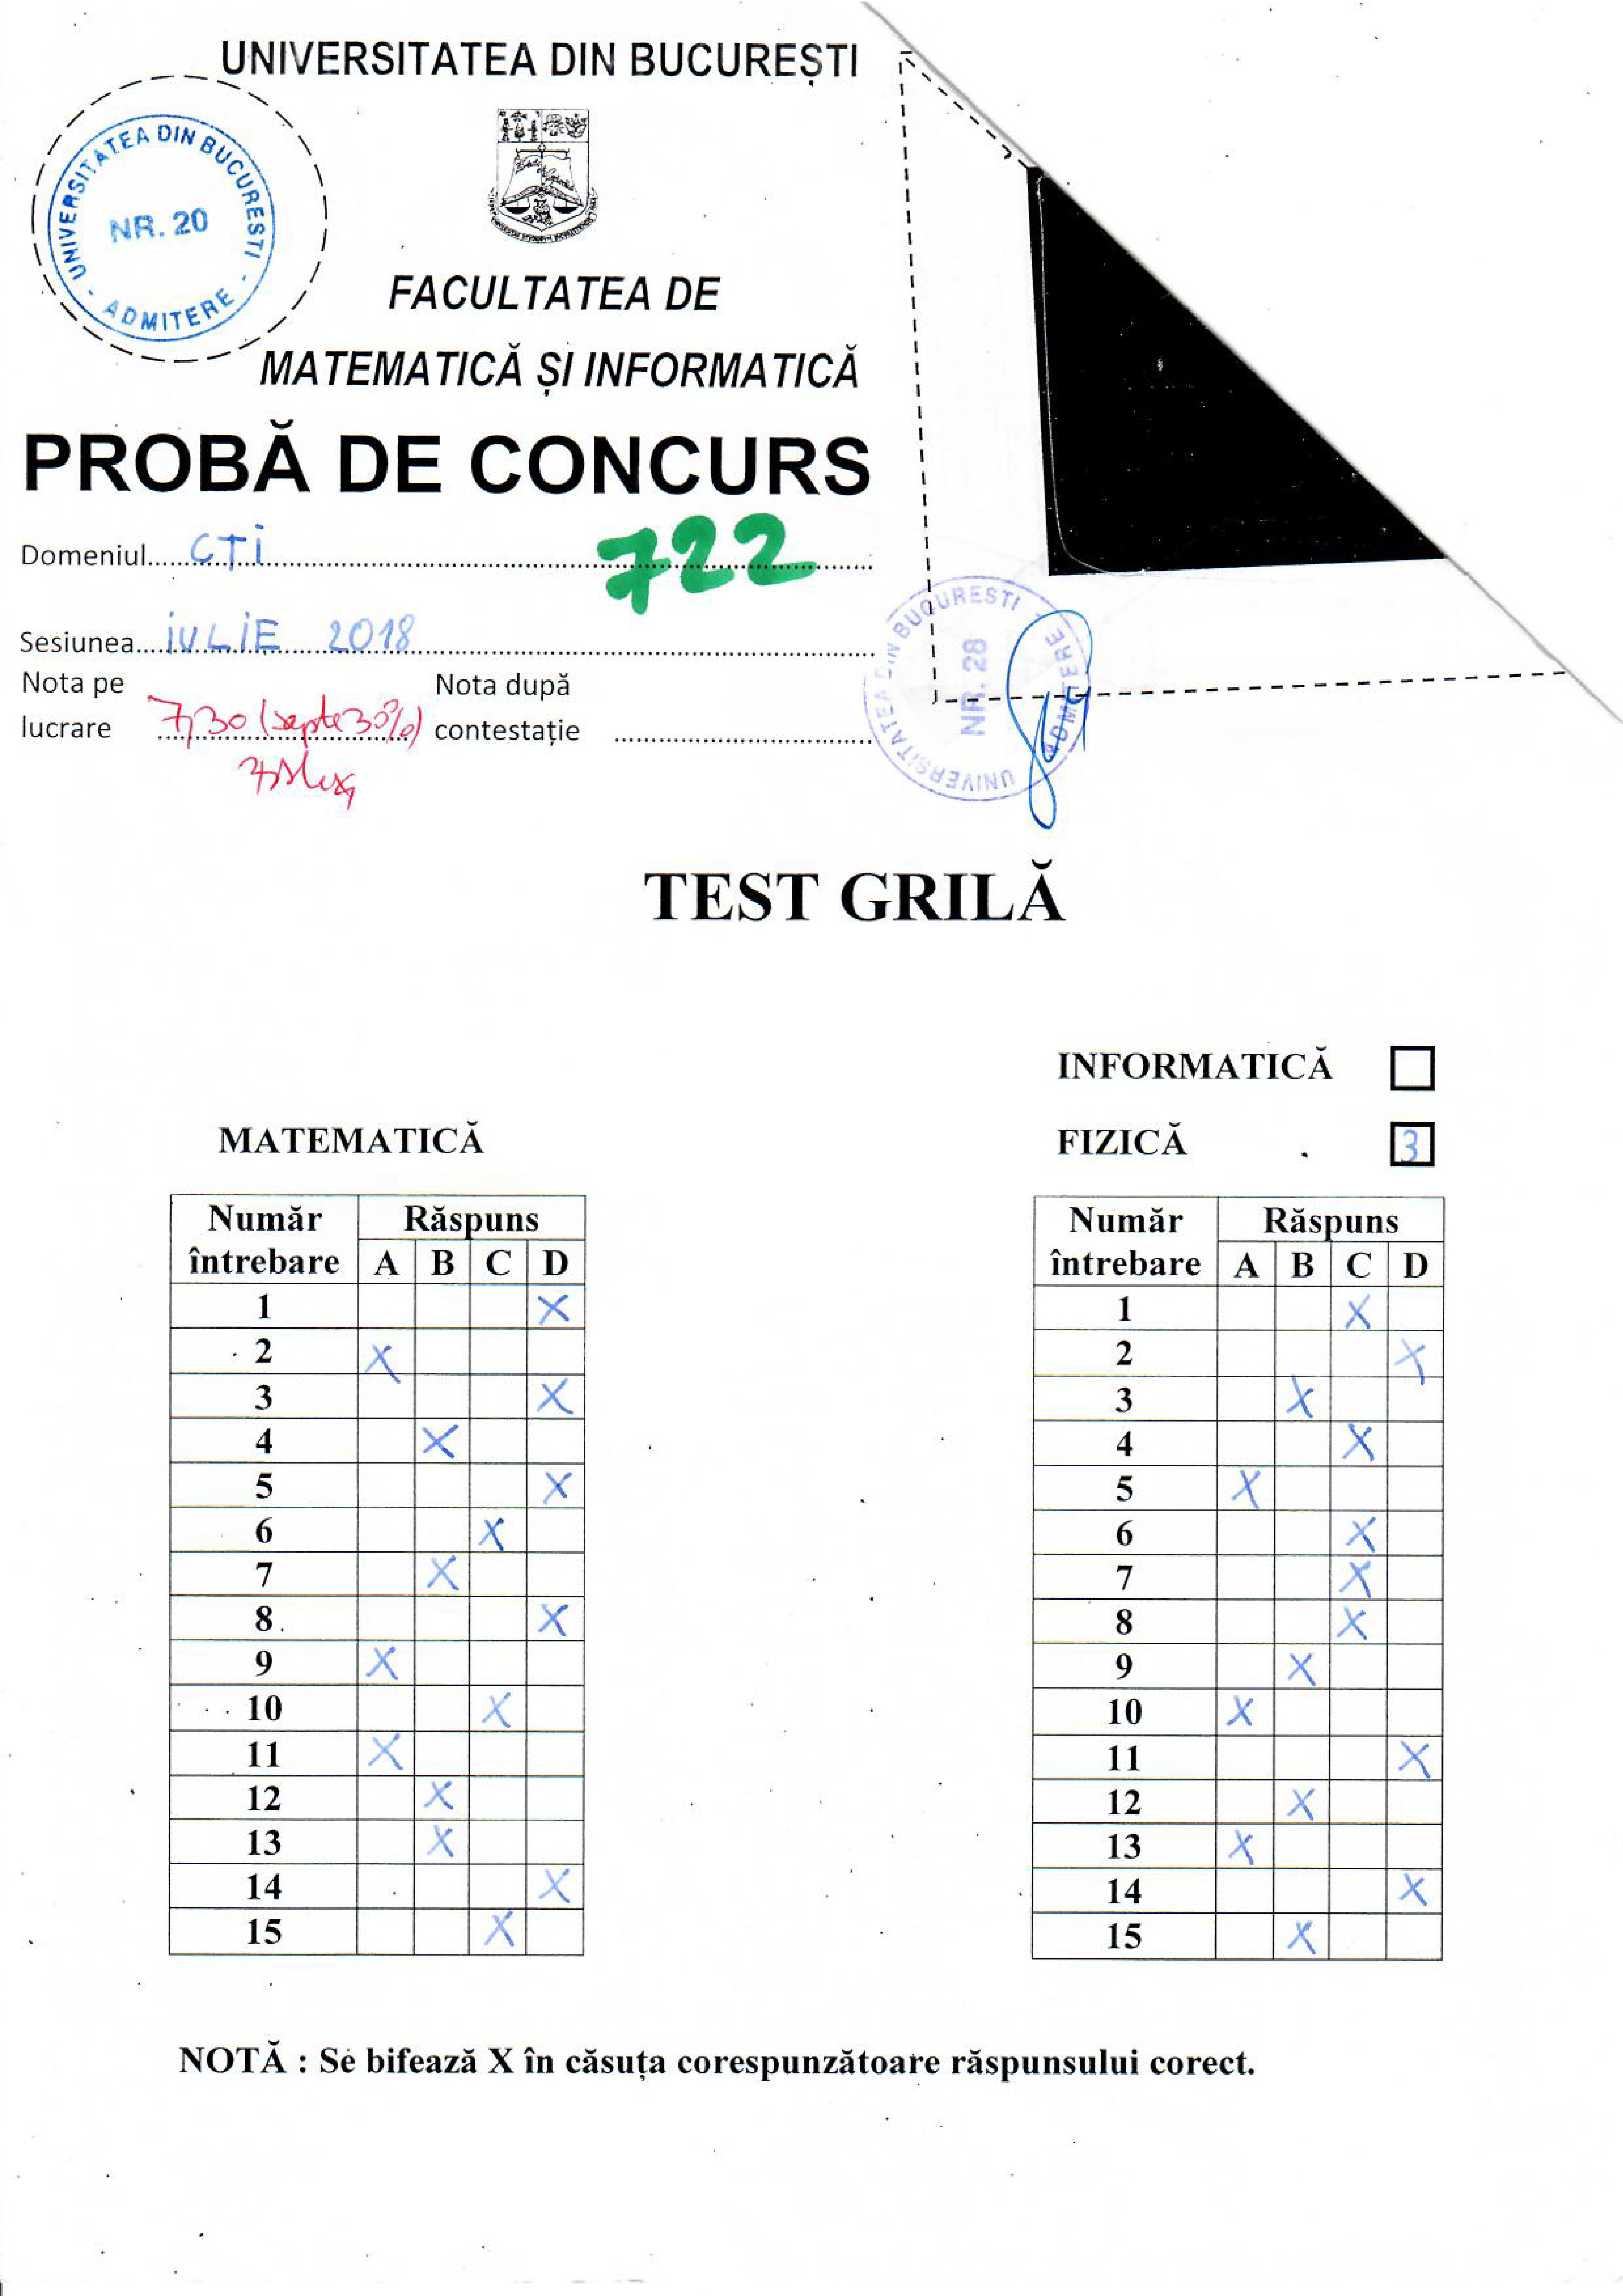 UNIVERSITATEA DIN BUCUREȘTI
UNIVERSITATEA DIN BUCURESTI
NR. 20
- ADMITERE -
FACULTATEA DE
MATEMATICĂ ȘI INFORMATICĂ
PROBĂ DE CONCURS
Domeniul CTI 722
Sesiunea iULiE 2018
Nota pe Nota după
lucrare 7,30 (șapte 30%) contestație
UNIVERSITATEA DIN BUCURESTI
NR. 28
ADMITERE
TEST GRILĂ
INFORMATICĂ
MATEMATICĂ
FIZICĂ 3
Număr Răspuns
întrebare A B C D
1 X
2 X
3 X
4 X
5 X
6 X
7 X
8 X
9 X
10 X
11 X
12 X
13 X
14 X
15 X
Număr Răspuns
întrebare A B C D
1 X
2 X
3 X
4 X
5 X
6 X
7 X
8 X
9 X
10 X
11 X
12 X
13 X
14 X
15 X
NOTĂ : Se bifează X în căsuța corespunzătoare răspunsului corect.